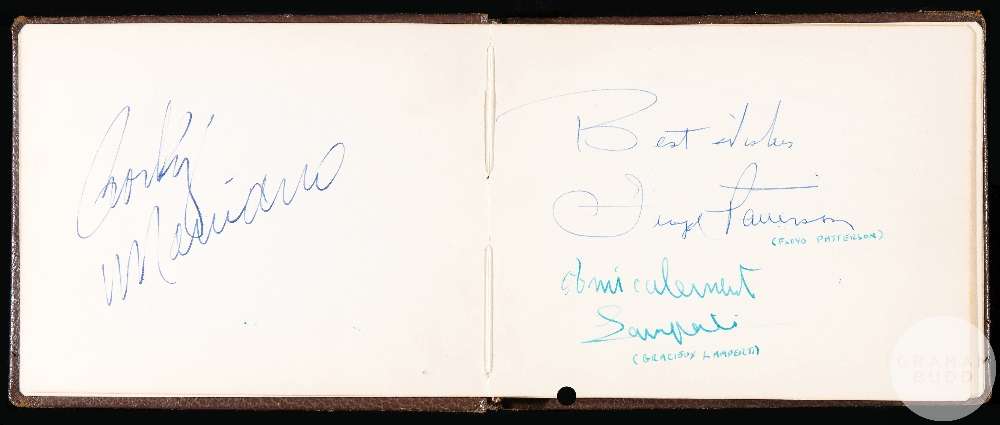 Rocky
Marciano
Best Wishes
Floyd Patterson
(FLOYD PATTERSON)
Amicalement
Lamperti
(GRACIEUX LAMPERTI)
GRAHAM
BUDD